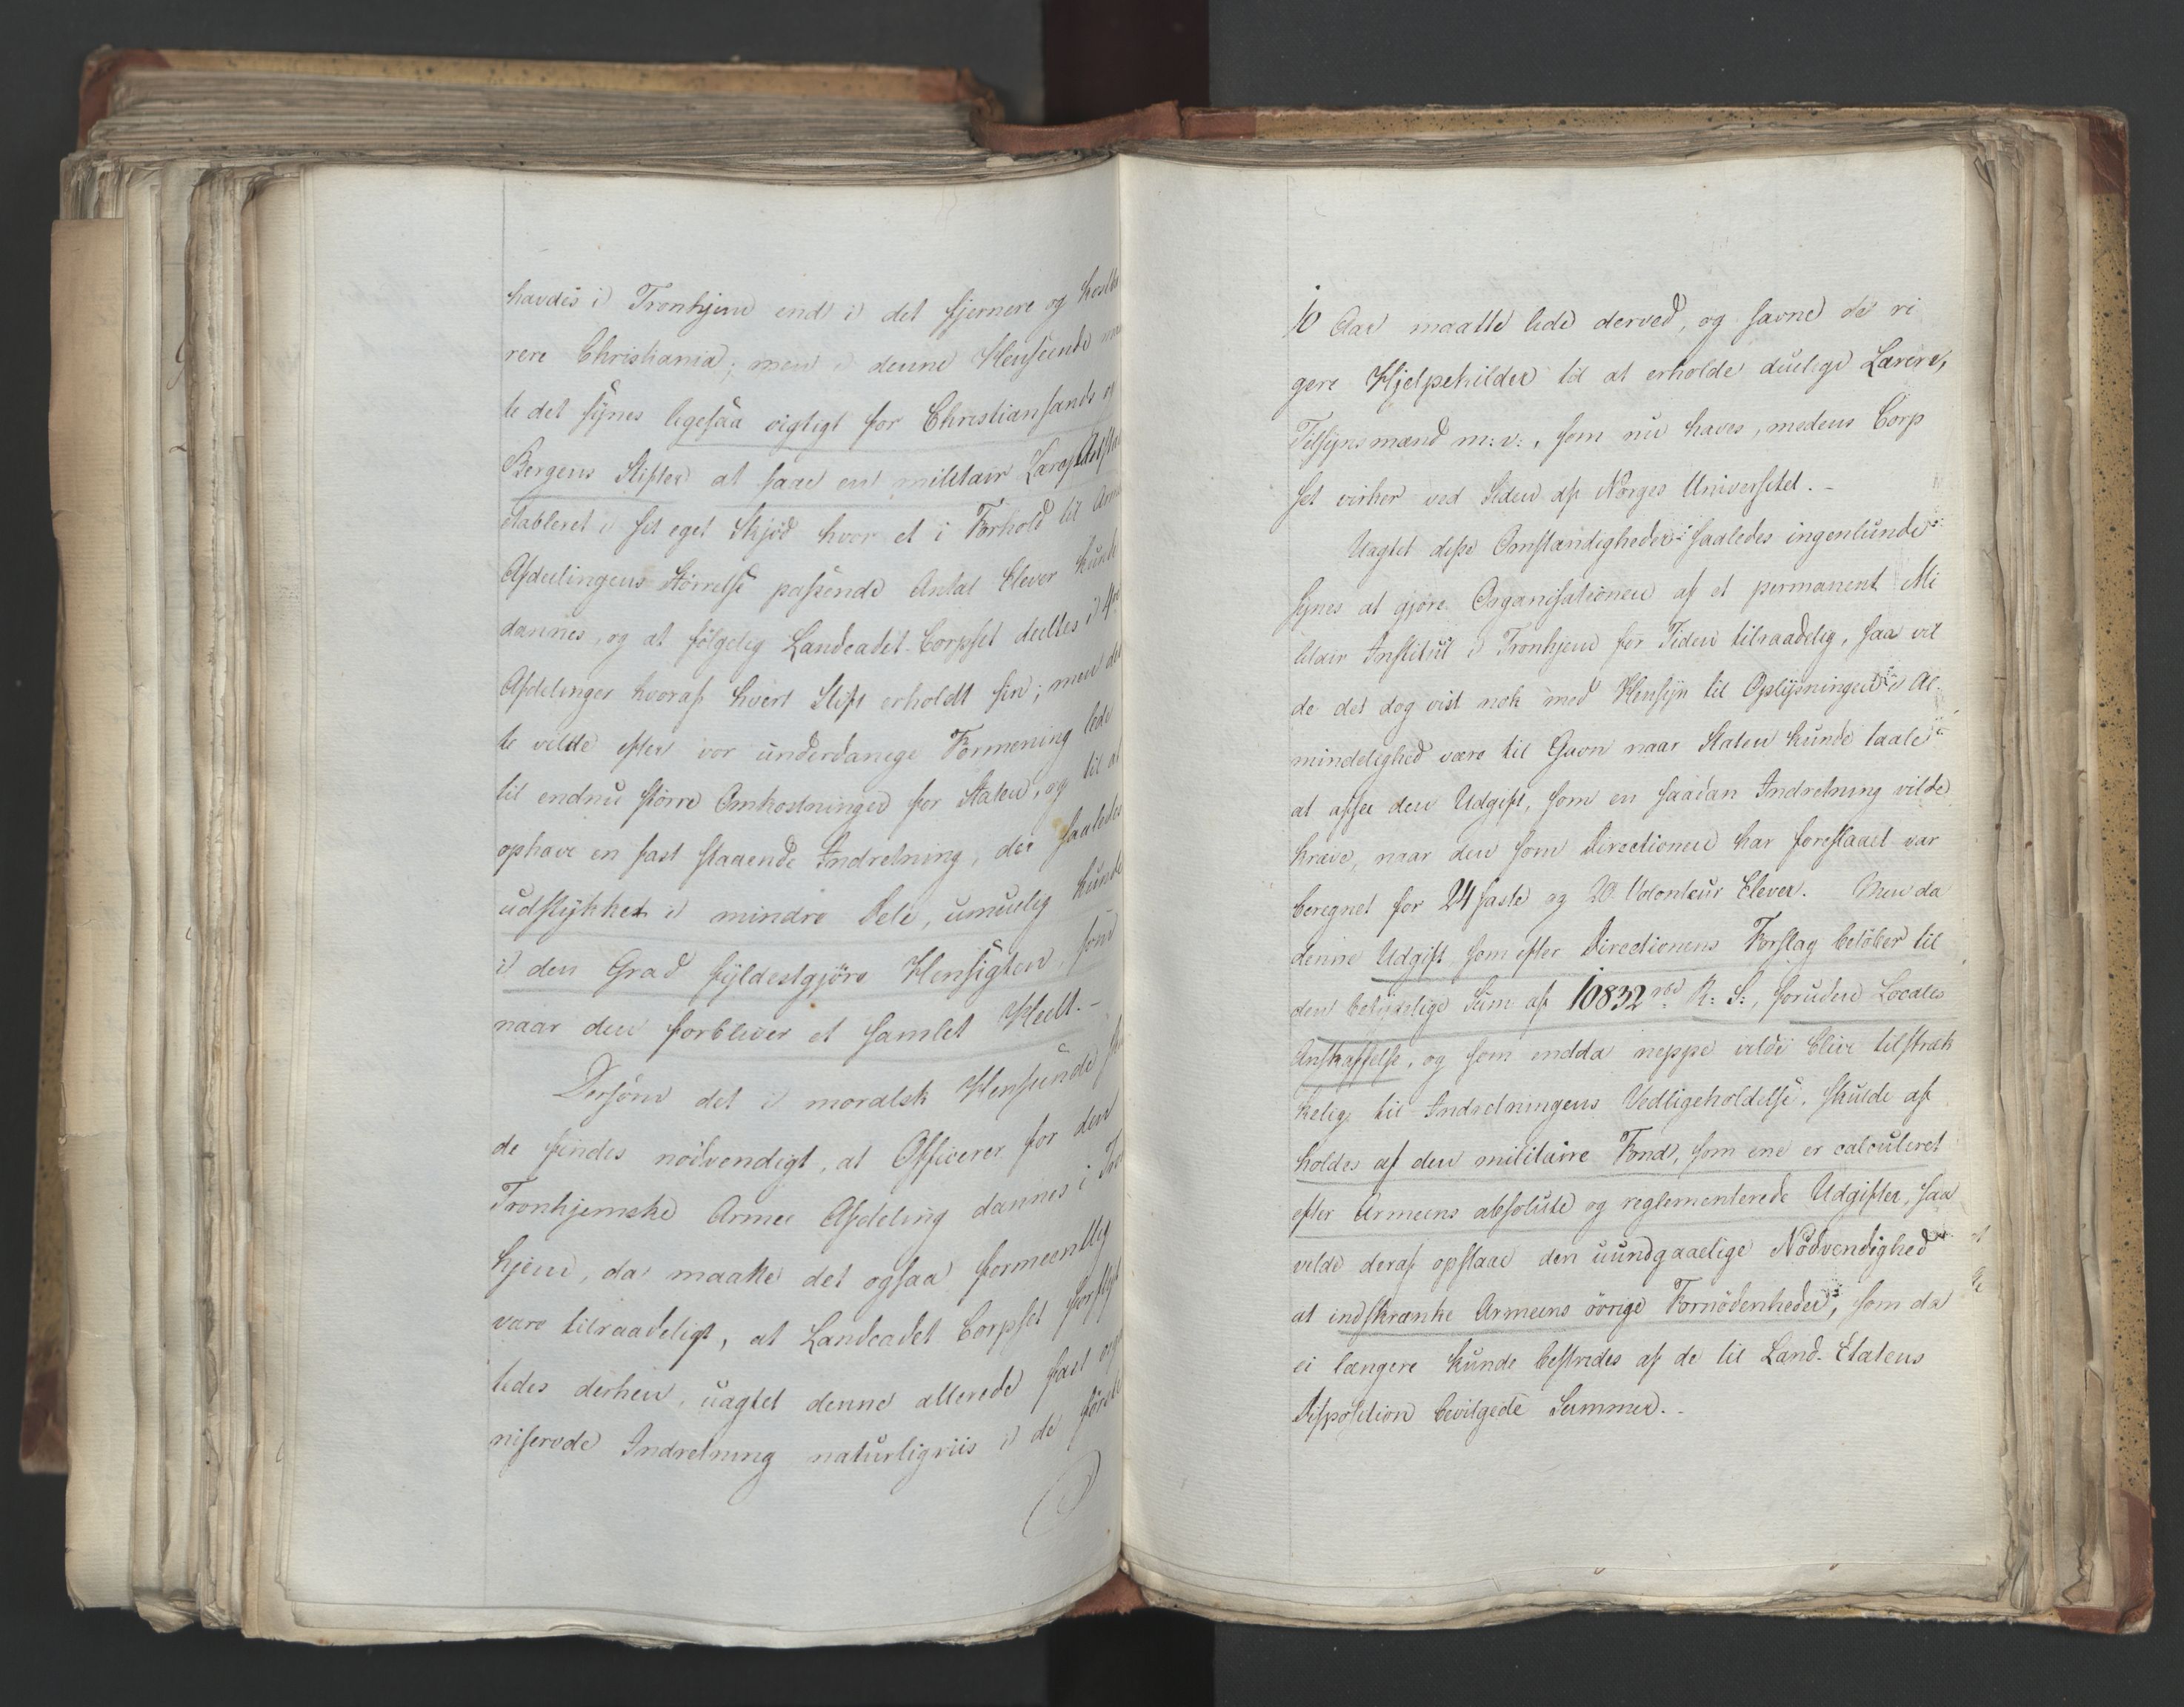 havdes i Tronhjem end i det fjernere og kostba
rere Christiania; men i denne Henseende maa
te det synes ligesaa vigtigt for Christiansands og
Bergens Stifter at faae en militair Læreanstalt
etableret i sit eget Skjöd hvor et i Forhold til Armee
Afdeelingens Störrelse passende Antal Elever kunde
dannes, og at fölgelig Landcadet-Corpset deeltes i 4re
Afdelinger hvoraf hvert Stift erholdt sin; men det
te vilde efter vor underdanige Formening lede
til endnu större Omkostninger for Staten, og til at
ophæve en fast staaende Indretning, der saaledes
udstykket i mindre Dele, umuelig kunde
i den Grad fyldestgjöre Hensigten, som
naar den forbliver et samlet Heelt.-
Dersom det i moralsk Henseende
de findes nödvendigt, at Officerer for den
Tronhjemske Armee Afdeling dannes i Tron
hjem, da maatte det ogsaa formeentlig
være tilraadeligt, at Landcadet Corpset forflyt
tedes derhen, uagtet denne allerede fast orga
niserede Indretning naturligviis i de förste
10 Aar maatte lide derved, og savne de ri
gere Hjelpekilder til at erholde duelige Lærere,
Tilsynsmænd m:v:, som nu haves, medens Corp
set virker ved Siden af Norges Universitet.-
Uagtet disse Omstændigheder saaledes ingenlunde
synes at gjöre Organisationen af et permanent Mi
litair Institut i Tronhjem for Tiden tilraadelig, saa vil
de det dog vist nok med Hensyn til Oplysningen i Al-
mindelighed være til Gavn naar Staten kunde taale
at afsee den Udgift, som en saadan Indretning vilde
kræve, naar den som Directionen har foreslaaet var
beregnet for 24 faste og 20 Volonteur Elever. Men da
denne Udgift som efter Directionens Forslag belöber til
den betydelige Sum af 10832 rbd R: S:, foruden Locales
Anskaffelse, og som endda neppe vilde blive tilstræk
kelig til Indretningens Vedligeholdelse, skulde af
holdes af den militaire Fond, som ene er calculeret
efter Armeens absolute og reglementerede Udgifter, saa
vilde deraf opstaae den uundgaaelige Nödvendighed
at indskrænke Armeens övrige Fornödenheder, som da
ei længere kunde bestrides af de til Land-Etatens
Disposition bevilgede Summer.-